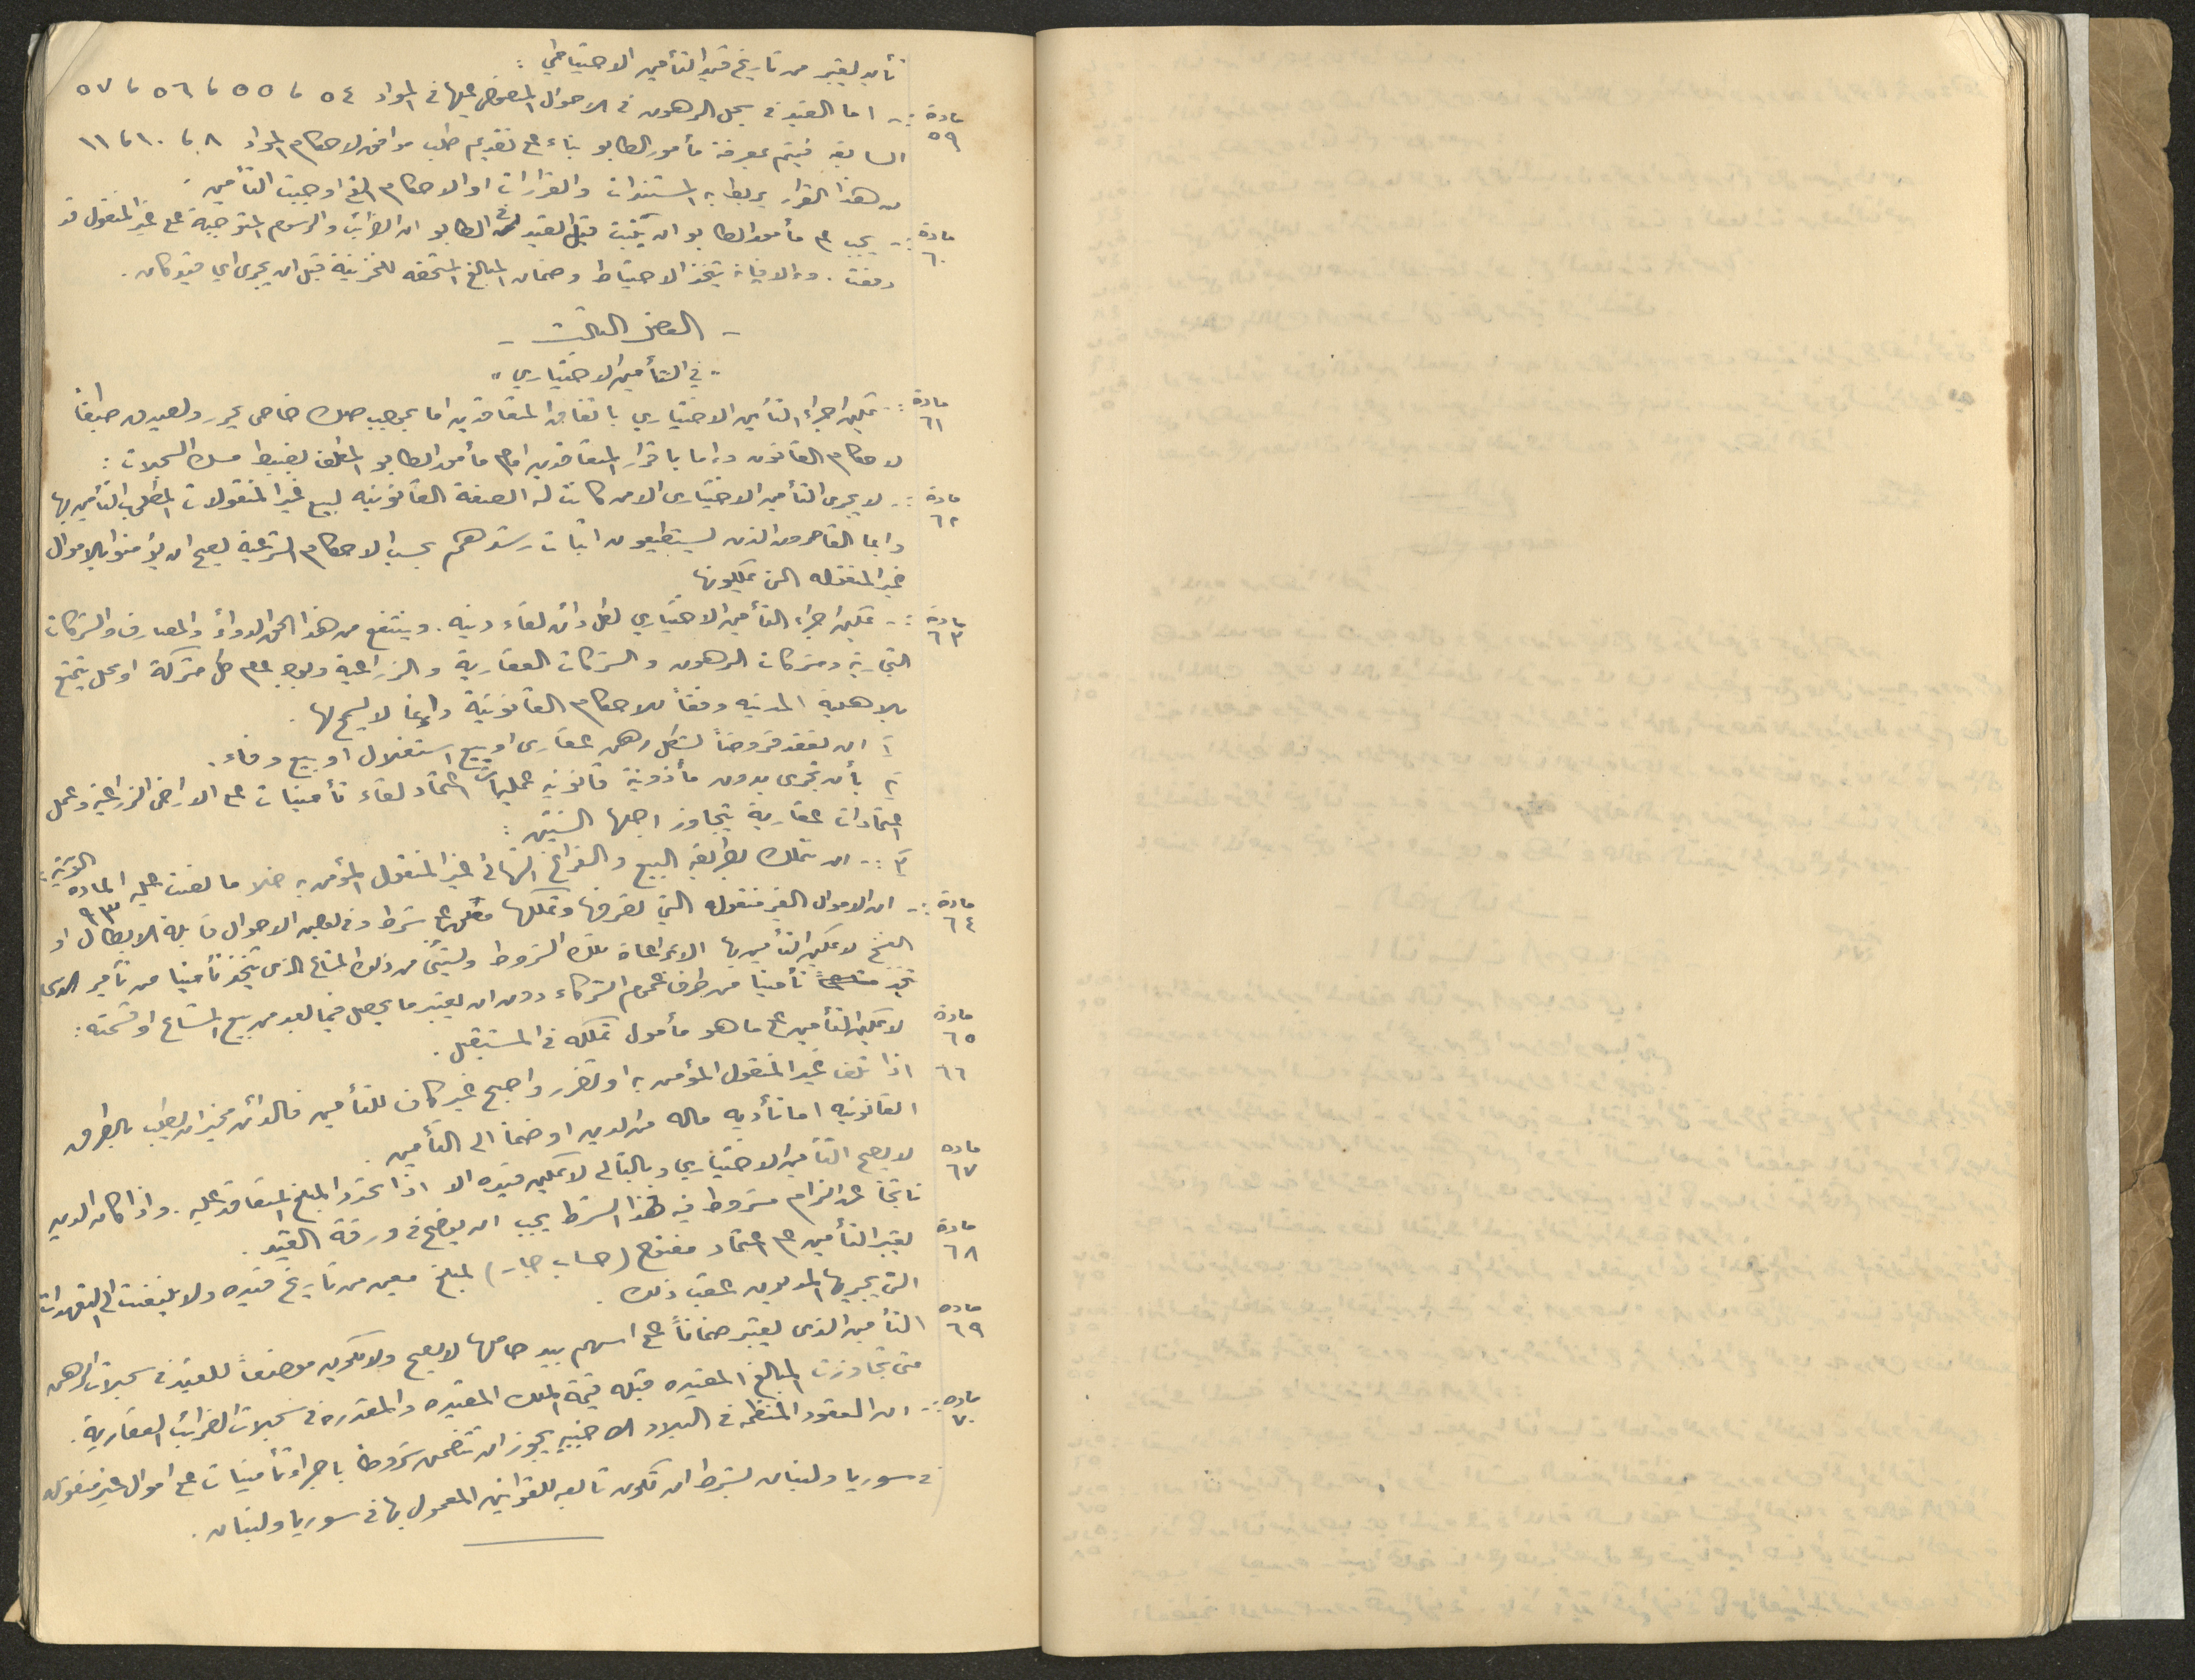 تأييد يعتبر من تاريخ قيد التأمين الاحتياطي :
مادة ٥٩ :- اما القيد في سجل الرهون في الاحوال المنصوص عليها في المواد ٥٤ ، ٥٥ ، ٥٦ ، ٥٧
السابقة فيتم بمعرفة مأمور الطابو بناء على تقديم طلب موافق لاحكام المواد ٨ ، ١٠ ، ١١
من هذا القرار يربط به المستندات والقرارات او الاحكام التي اوجبت التأمين .
مادة ٦٠ :- يجب على مأمور الطابو ان يثبت قبل القيد في الطابو ان الضرائب والرسوم المتوجبة على غير المنقول قد
دفعت . والا فانه يتخذ الاحتياط وضمان المبالغ المستحقة للخزينة قبل ان يجري اي قيد كان .
- الفصل الثالث -
" في التأمين الاختياري "
مادة ٦١ :- يمكن اجراء التأمين الاختياري باتفاق المتعاقدين اما بموجب صك خاص يحرر ويصدق طبقاً
لاحكام القانون واما باقرار المتعاقدين امام مأمور الطابو المكلف بضبط مسك السجلات :
مادة ٦٢ :- لا يجري التأمين الاختياري الا من كانت له الصفة القانونية لبيع غير المنقولات المطلوب التأمين بها
وانما القاصرون الذين يستطيعون اثبات رشدهم بحسب الاحكام الشرعية يصح ان يؤمنوا بالاموال
غير المنقولة التي يملكونها
مادة ٦٣ :- يمكن اجراء التأمين الاختياري لكل دائن لقاء دينه . وينتفع من هذا الحق الدوائر والمصارف والشركات
التجارية وشركات الرهون والشركات العقارية والزراعية وبوجه عام كل شركة او محل يتمتع
بالاهلية المدنية وفقاً للاحكام القانونية وانما لا يسمح لها .
١ً ان تعقد قروضاً بشكل رهن عقاري او بيع استغلال او بيع وفاء .
٢ً بأن تجري بدون مأذونية قانونية عمليات اعتماد لقاء تأمينات على الاراضي الزراعية وعمل
اعتمادات عقارية يتجاوز اجلها السنتين :
٣ً :- ان تتملك بطريقة البيع والفراغ النهائي غير المنقول المؤمن به خلا ما نصت عليه المادة ٩٣ الآتية :
مادة ٦٤ :- ان الاموال الغير منقولة التي تصرفها وتملكها معلق على شرط وفي بعض الاحوال قابلة الابطال او
الفسخ لا يمكن التأمين بها الا بمراعاة تلك الشروط ويستثنى من ذلك المشاع الذي يتخذ تأمينا من تأمير الذي
تجد تأمينا من طرف عموم الشركاء دون ان يعتبر ما يحصل فيما بعد من بيع المشاع او قسمته :
مادة ٦٥ لا يمكن التأمين على ما هو مأمول تملكه في المستقبل .
٦٦ اذا تلف غير المنقول المؤمن به او تضرر واصبح غير كاف للتأمين فالدائن مخير ان يطلب بالطرق
القانونية اما تأدية ماله من الدين او ضماً الى التأمين .
مادة ٦٧ لا يصح التأمين الاختياري وبالتالي لا يمكن قيده الا اذا تحدد المبلغ المتعاقد عليه . واذا كان الدين
ناتجاً عن التزام مشروط فيه هذا الشرط يجب ان يوضح في ورقة القيد .
مادة ٦٨ يعتبر التأمين على اعتماد مفتوح (حساب جار) لمبلغ معين من تاريخ قيده ولا يلتفت الى التعهدات
التي يجريها المديون عقب ذلك .
مادة ٦٩ التأمين الذي يعتبر ضماناً على اسهم بيد حاملها لا يصح ولا يكون موضعاً للقيد في سجلات الرهن
متى تجاوزت المبالغ المقيدة قبله قيمة الملك المقيدة والمقدرة في سجلات الضرائب العقارية .
مادة ٧٠ :- ان العقود المنظمة في البلاد الاجنبية يجوز ان تتضمن شروطا باجراء تأمينات على اموال غير منقولة
في سوريا ولبنان بشرط ان تكون تابعة للقوانين المعمول بها في سوريا ولبنان .